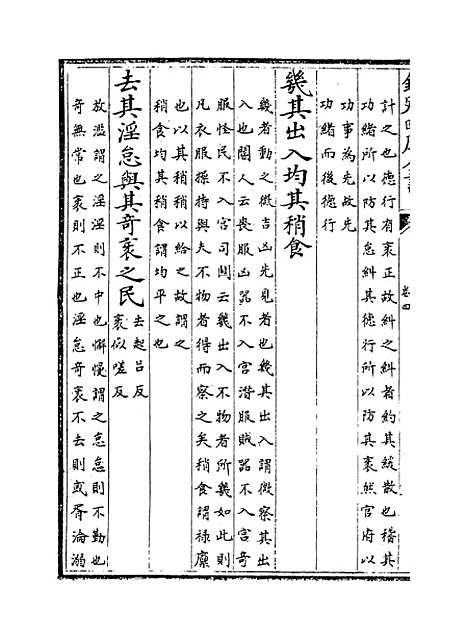 計之也德行有衺正故糾之糾者約其緩散也稽其
功緒所以防其怠糾其德行所以防其衺然官府以
功事為先故先
功緒而後德行
幾其出入均其稍食
幾者動之微吉凶先見者也幾其出入謂微察其出
入也閽人云喪服凶器不入宫潜服賊器不入宫奇
服怪民不入宫司門云幾出入不物者所幾如此則
凡衣服操持與夫不物者得而察之矣稍食謂祿廩
也以其稍稍以給之故謂之
稍食均其稍食謂均平之也
去其淫怠與其奇衺之民
去起吕反
衺似嗟反
放濫謂之淫淫則不中也懈慢謂之怠怠則不勤也
奇無常也衺則不正也淫怠奇衺不去則或胥淪溺
卷四